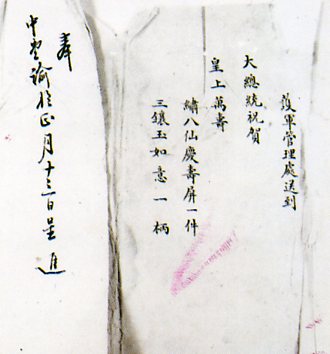 護軍管理處送到
大總統祝賀
皇上萬壽
繡八仙慶壽屏一件
三鑲玉如意一柄
奉
中堂諭於正月十三日呈進